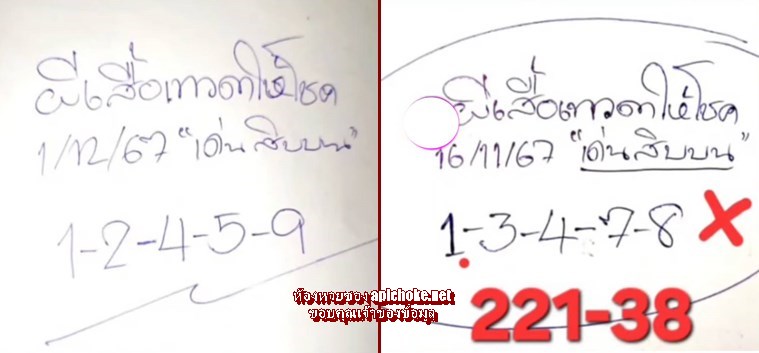 ผีเสื้อเทวดาให้โชค
1/12/67 "เด่นสิบบน"
1-2-4-5-9
ผีเสื้อเทวดาให้โชค
16/11/67 "เด่นสิบบน"
1-3-4-7-8 X
221-38
ห้องหวยซอง apichoke.net
ขอบคุณเจ้าของข้อมูล